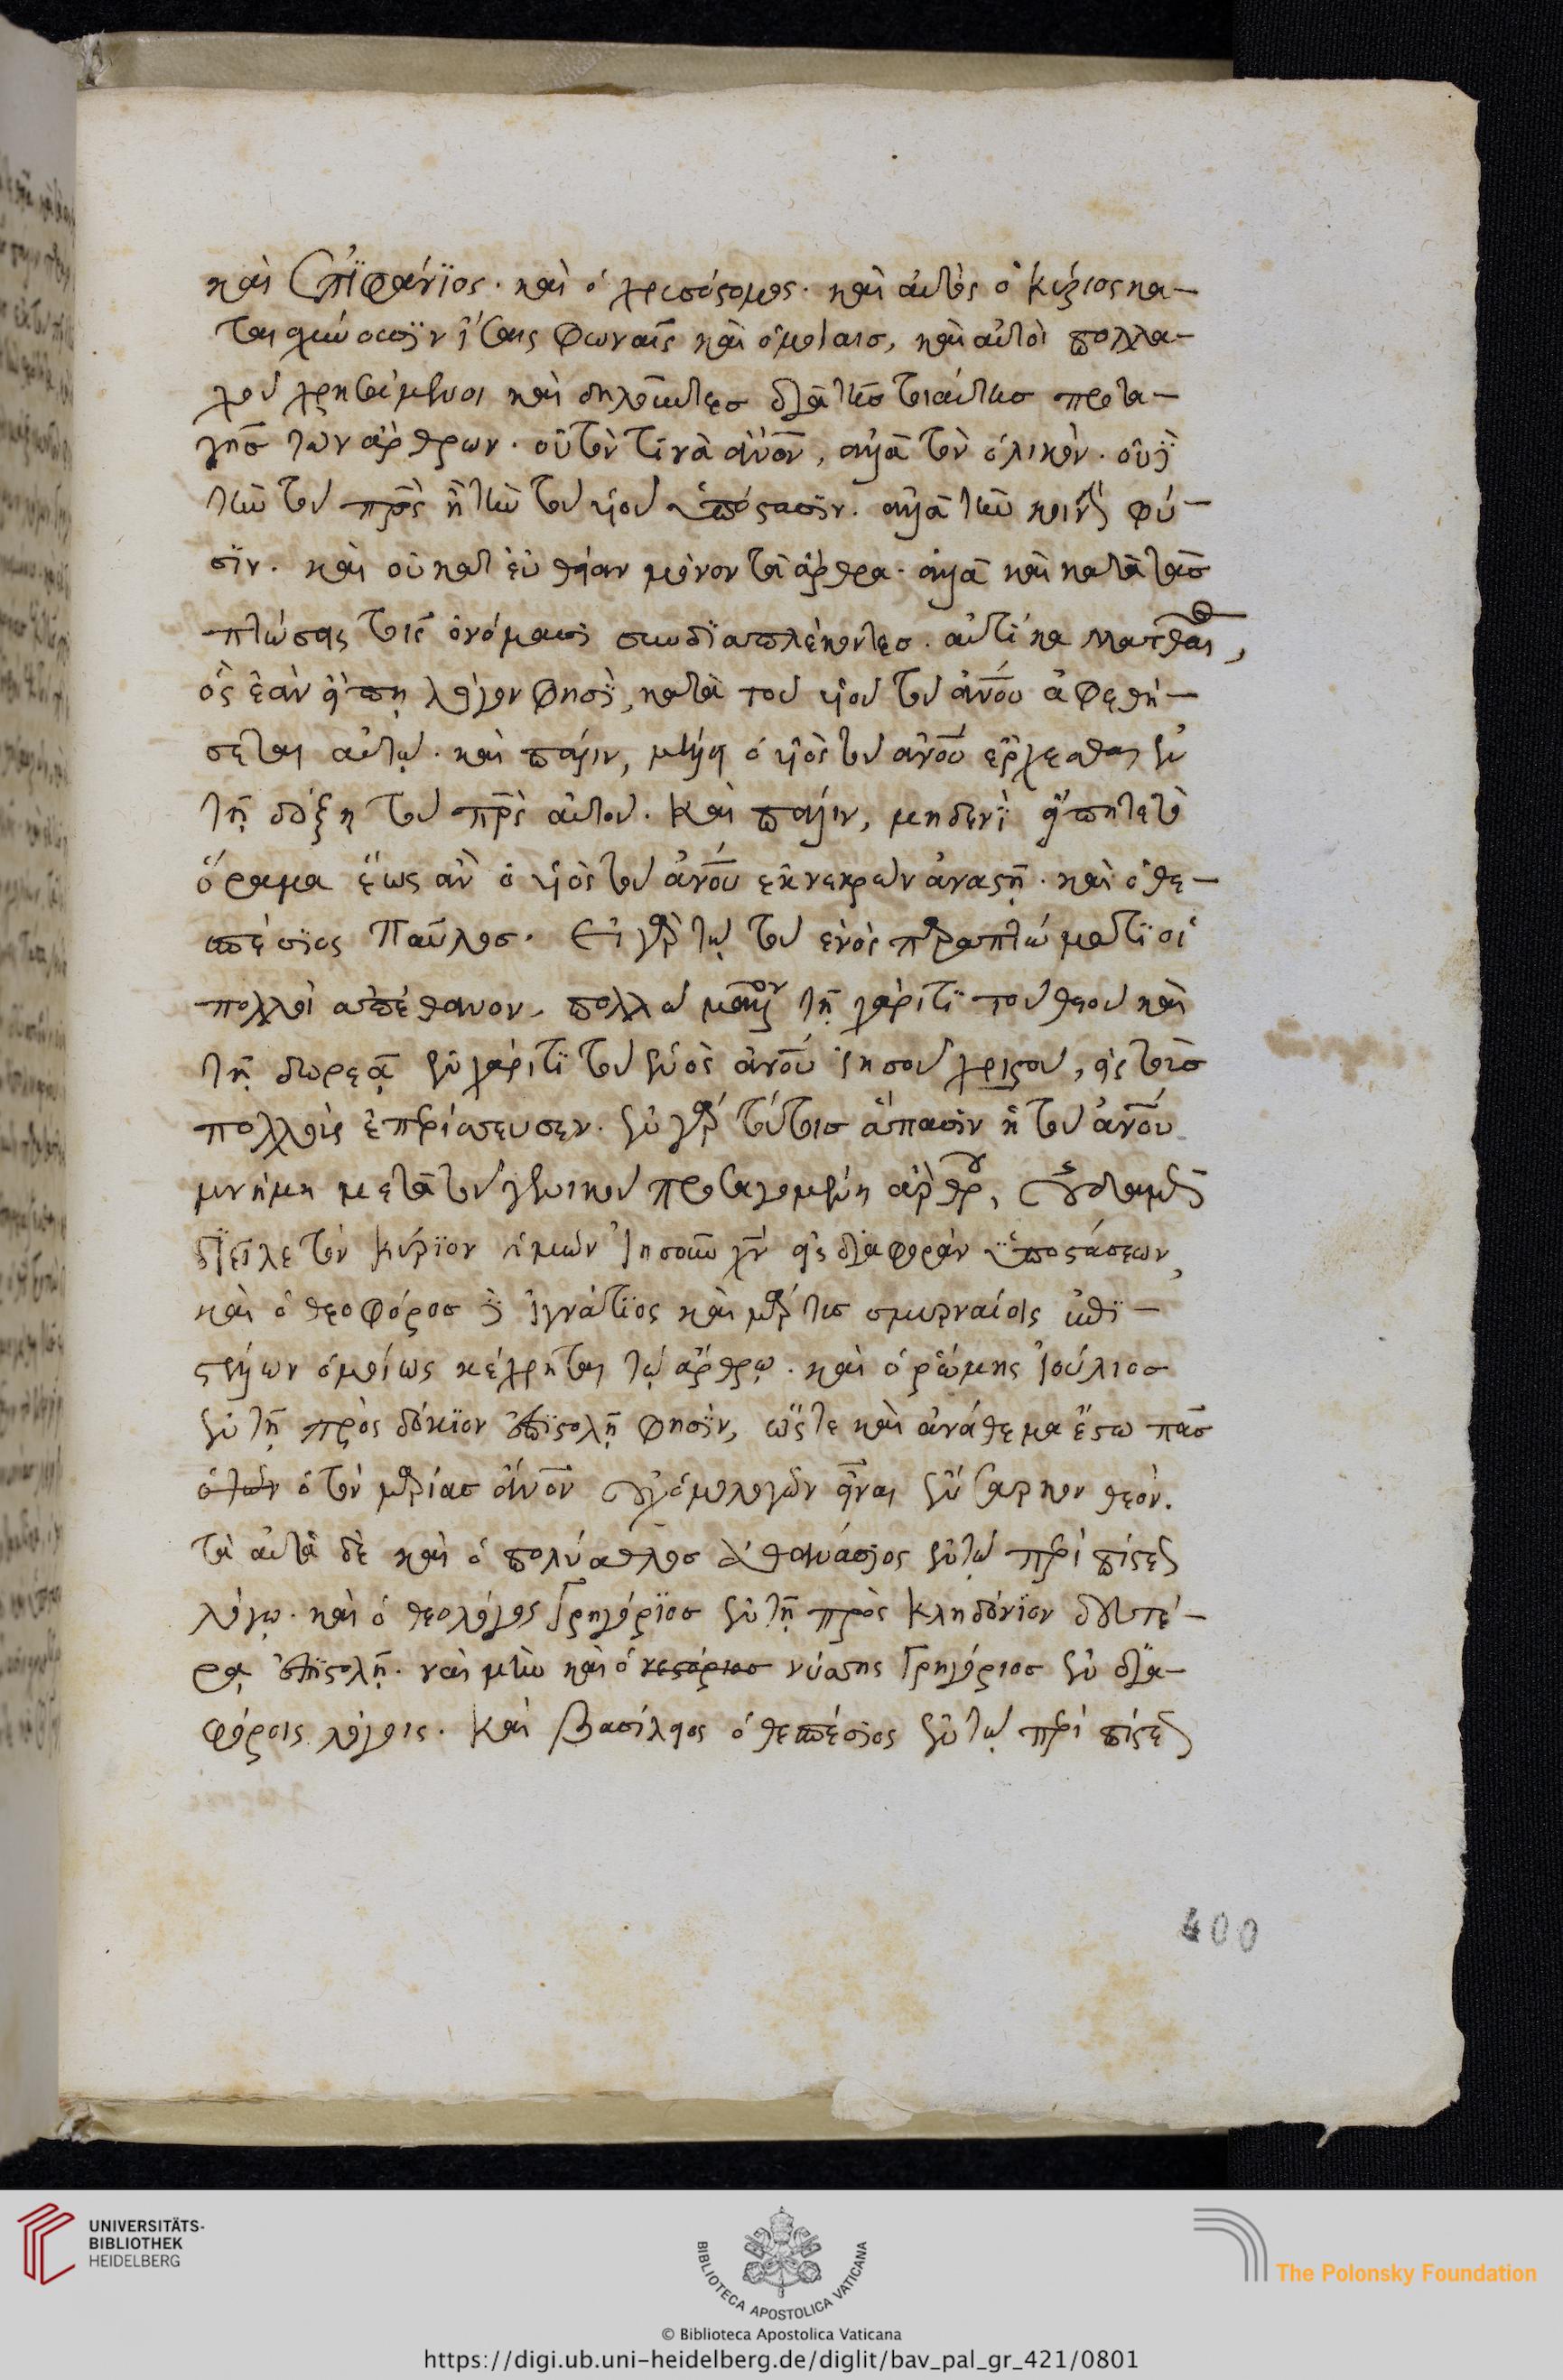 καὶ Ἐπϊφάνϊος. καὶ ὁ χρυσόστομος. καὶ αὐτὸς ὁ κύριος κα-
ται φωναῖς καὶ ὁμοίαισ, καὶ αὐτοὶ πολλα-
χοῦ χρησάμενοι καὶ δηλοῦντεσ διὰ τῆσ τοιαύτησ προτα-
γῆσ τῶν ἄρθρων. οὐ τόν τινὰ ἄνον, ἀλλὰ τὸν ὁλικόν. οὐ
τὴν τοῦ πρς ἢ τὴν τοῦ υἱοῦ ὑπόστασϊν. ἀλλὰ τὴν κοινὴν φύ-
σϊν. καὶ οὐ κατ εὐθεῖαν μόνον τὰ ἄρθρα. ἀλλὰ καὶ κατὰ τὰσ
πτώσεις τοῖς ὀνόμασι συνδϊαπλέκοντεσ. αὐτίκα ματθαῖ,
ὃς ἐὰν εἴπῃ λόγον φησὶ, κατὰ τοῦ υἱοῦ τοῦ ἀνου ἀφεθή-
σεται αὐτῷ. καὶ πάλιν, μέλλει ὁ υἱὸς τοῦ ἀνου ἔρχεσθαι ἐν
τῇ δόξῃ τοῦ πρς αὐτοῦ. Καὶ πάλιν, μηδενὶ εἴπητε τὸ
ὅραμα ἕως ἂν ὁ υἱὸς τοῦ ἀνου ἐκ νεκρῶν ἀναστῇ. καὶ ὁ θε-
σπέσϊος Παῦλοσ. Εἰ γὰρ τῷ τοῦ ἑνὸς παραπτώματϊ οἱ
πολλοὶ ἀπέθανον, πολλῶ μᾶλλον τῇ χάριτϊ τοῦ θεοῦ καὶ
τῇ δωρεᾷ ἐν χάριτϊ τοῦ ἑνὸς ἀνου ἰησοῦ χριστοῦ, εἰς τοὺσ
πολλοὺς ἐπερίσσευσεν. ἐν γὰρ τούτοισ ἅπασιν ἡ τοῦ ἀνου
μνήμη μετὰ τοῦ γενικοῦ προταγομένη ἄρθρου, οὐδαμῶς
διεῖλε τὸν κύρϊον ἡμῶν Ἰησοῦν χν εἰς διαφορὰν ὑποστάσεων,
καὶ ὁ θεοφόροσ Ἰγνάτϊος καὶ μάρτυσ σμυρναίοις ἐπι-
στέλλων ὁμοίως κέχρηται τῷ ἄρθρῳ. καὶ ὁ ῥώμης Ἰούλιοσ
ἐν τῇ πρὸς δόκϊον ἐπϊστολῇ φησϊν, ὥστε καὶ ἀνάθεμα ἔστω πᾶσ
ὁ τὸν μαρίασ ἄνον οὐχ ὁμολογῶν εἶναι ἔνσαρκον θεόν.
τὰ αὐτὰ δὲ καὶ ὁ πολύαθλοσ ἀθανάσιος ἐν τῷ περὶ πίστεως
λόγῳ. καὶ ὁ θεολόγος Γρηγόρϊοσ ἐν τῇ πρὸς Κληδόνϊον δευτέ-
ρᾳ ἐπϊστολῇ. ναὶ μὴν καὶ ὁ νύσσης Γρηγόριοσ ἐν δϊα-
φόροις λόγοις. Καὶ Βασίλειος ὁ θεσπέσιος ἐν τῷ περὶ πίστεως
400
UNIVERSITÄTS-
BIBLIOTHEK
HEIDELBERG
BIBLIOTECA APOSTOLICA VATICANA
© Biblioteca Apostolica Vaticana
The Polonsky Foundation
https://digi.ub.uni-heidelberg.de/diglit/bav_pal_gr_421/0801